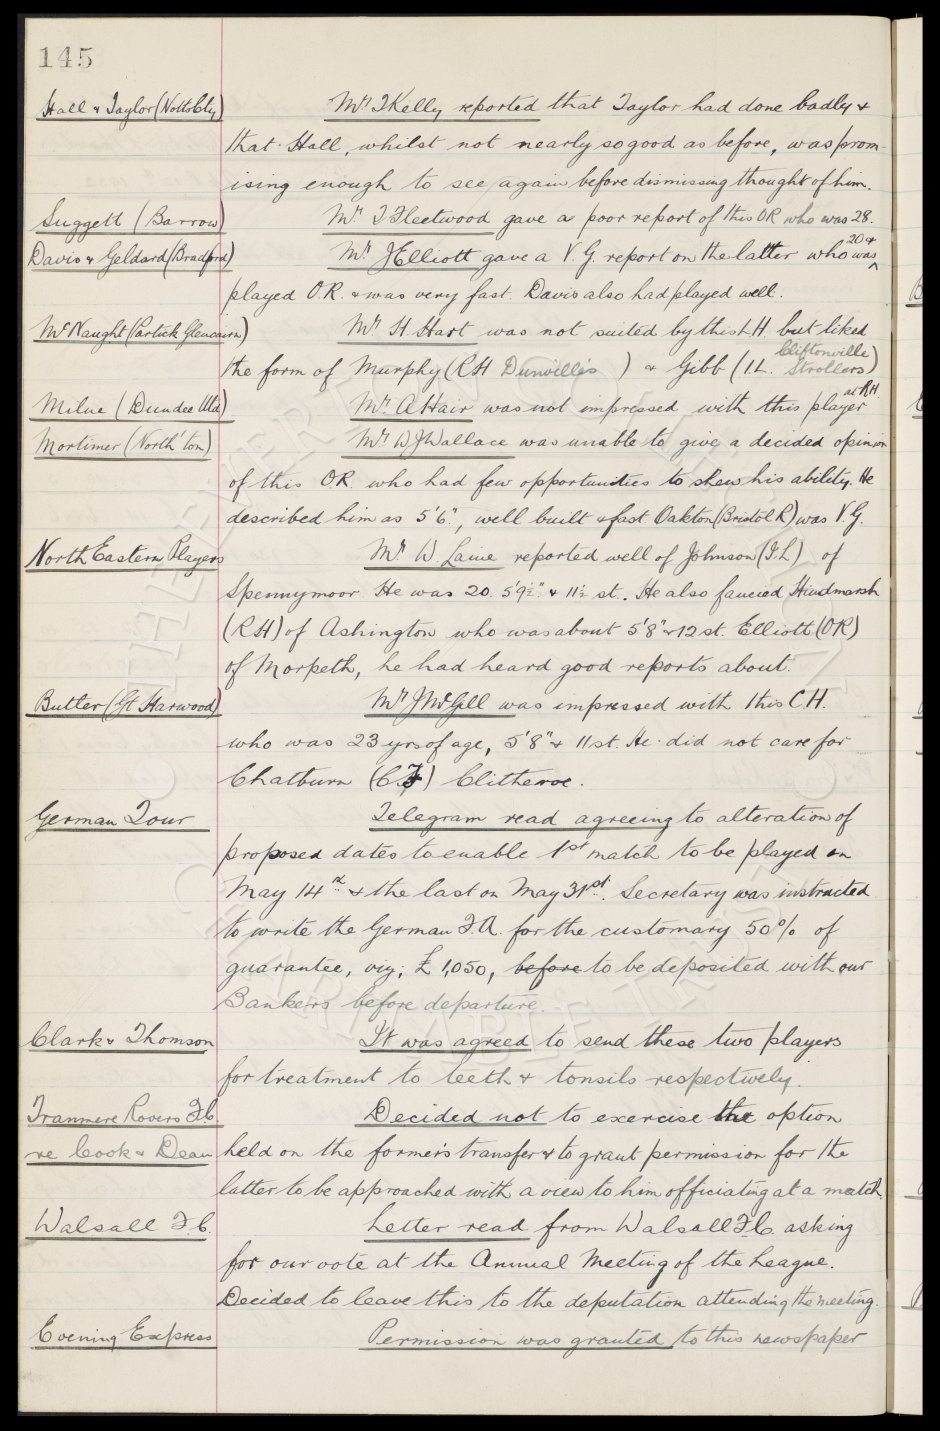 145
Hall & Taylor (Notts Cty) Mr. T Kelly reported that Taylor had done badly &
that Hall, whilst not nearly so good as before, was prom-
ising enough to see again before dismissing thought of him.
Suggett (Barrow) Mr. T Fleetwood gave a poor report of this OR who was 28.
Davis & Geldard (Bradford) Mr. J Elliott gave a V.G. report on the latter who was 20 &
played O.R. & was very fast. Davis also had played well.
McNaught (Partick Glencairn) Mr. H. Hart was not suited by this L.H. but liked
the form of Murphy (RH Dunville's ) & Gibb (IL. Cliftonville Strollers)
Milne (Dundee Utd) Mr. A Hair was not impressed with this player at RH.
Mortimer (North'ton) Mr. W J Wallace was unable to give a decided opinion
of this O.R. who had few opportunities to shew his ability. He
described him as 5'6", well built & fast. Oakton (Bristol R) was V.G.
North Eastern Players Mr. W. Laine reported well of Johnson (I.L) of
Spennymoor. He was 20. 5'9½" & 11½ st. He also fancied Hindmarsh
(RH) of Ashington who was about 5'8" & 12 st. Elliott (OR)
of Morpeth, he had heard good reports about.
Butler (Gt Harwood) Mr. J McGill was impressed with this C.H.
who was 23 yrs of age, 5'8" & 11 st. He did not care for
Chatburn (C.F) Clitheroe.
German Tour Telegram read agreeing to alteration of
proposed dates to enable 1st match to be played on
May 14th & the last on May 31st. Secretary was instructed
to write the German F.A. for the customary 50% of
guarantee, viz; £1,050, before to be deposited with our
Bankers before departure.
Clark & Thomson It was agreed to send these two players
for treatment to teeth & tonsils respectively.
Tranmere Rovers F.C. Decided not to exercise the option
re Cook & Dean held on the former's transfer & to grant permission for the
latter to be approached with a view to him officiating at a match.
Walsall F.C. Letter read from Walsall F.C. asking
for our vote at the Annual Meeting of the League.
Decided to leave this to the deputation attending the meeting.
Evening Express Permission was granted to this newspaper